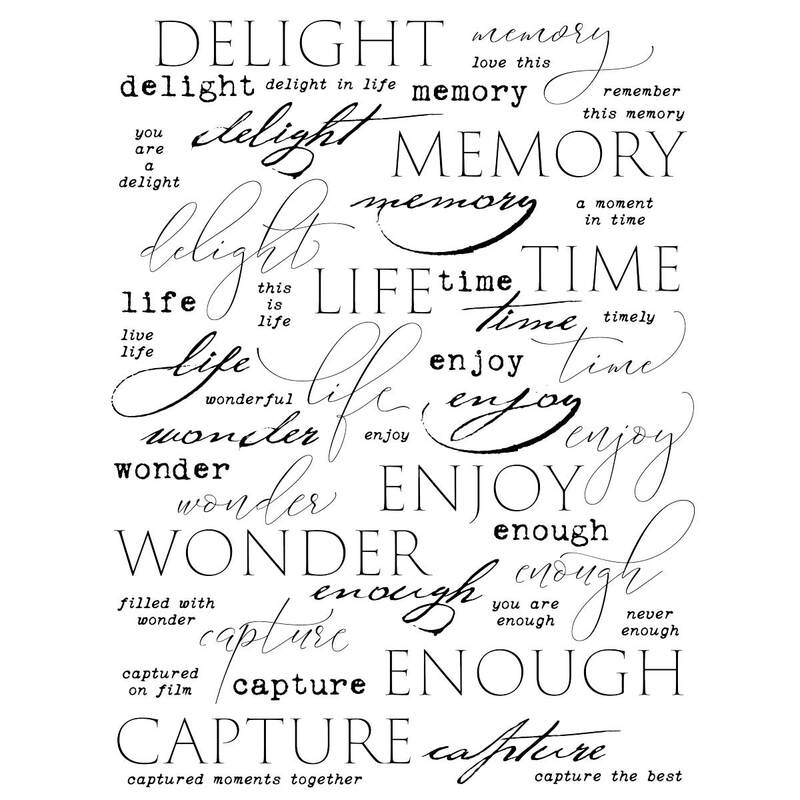 DELIGHT
memory
love this
delight
delight in life
memory
remember
this memory
you
are
a
delight
delight
MEMORY
memory
a moment
in time
delight
this
is
life
LIFE
time
TIME
life
time
timely
live
life
life
life
enjoy
time
wonderful
enjoy
wonder
enjoy
enjoy
wonder
wonder
ENJOY
enough
WONDER
enough
enough
filled with
wonder
you are
enough
never
enough
capture
captured
on film
capture
ENOUGH
CAPTURE
capture
captured moments together
capture the best